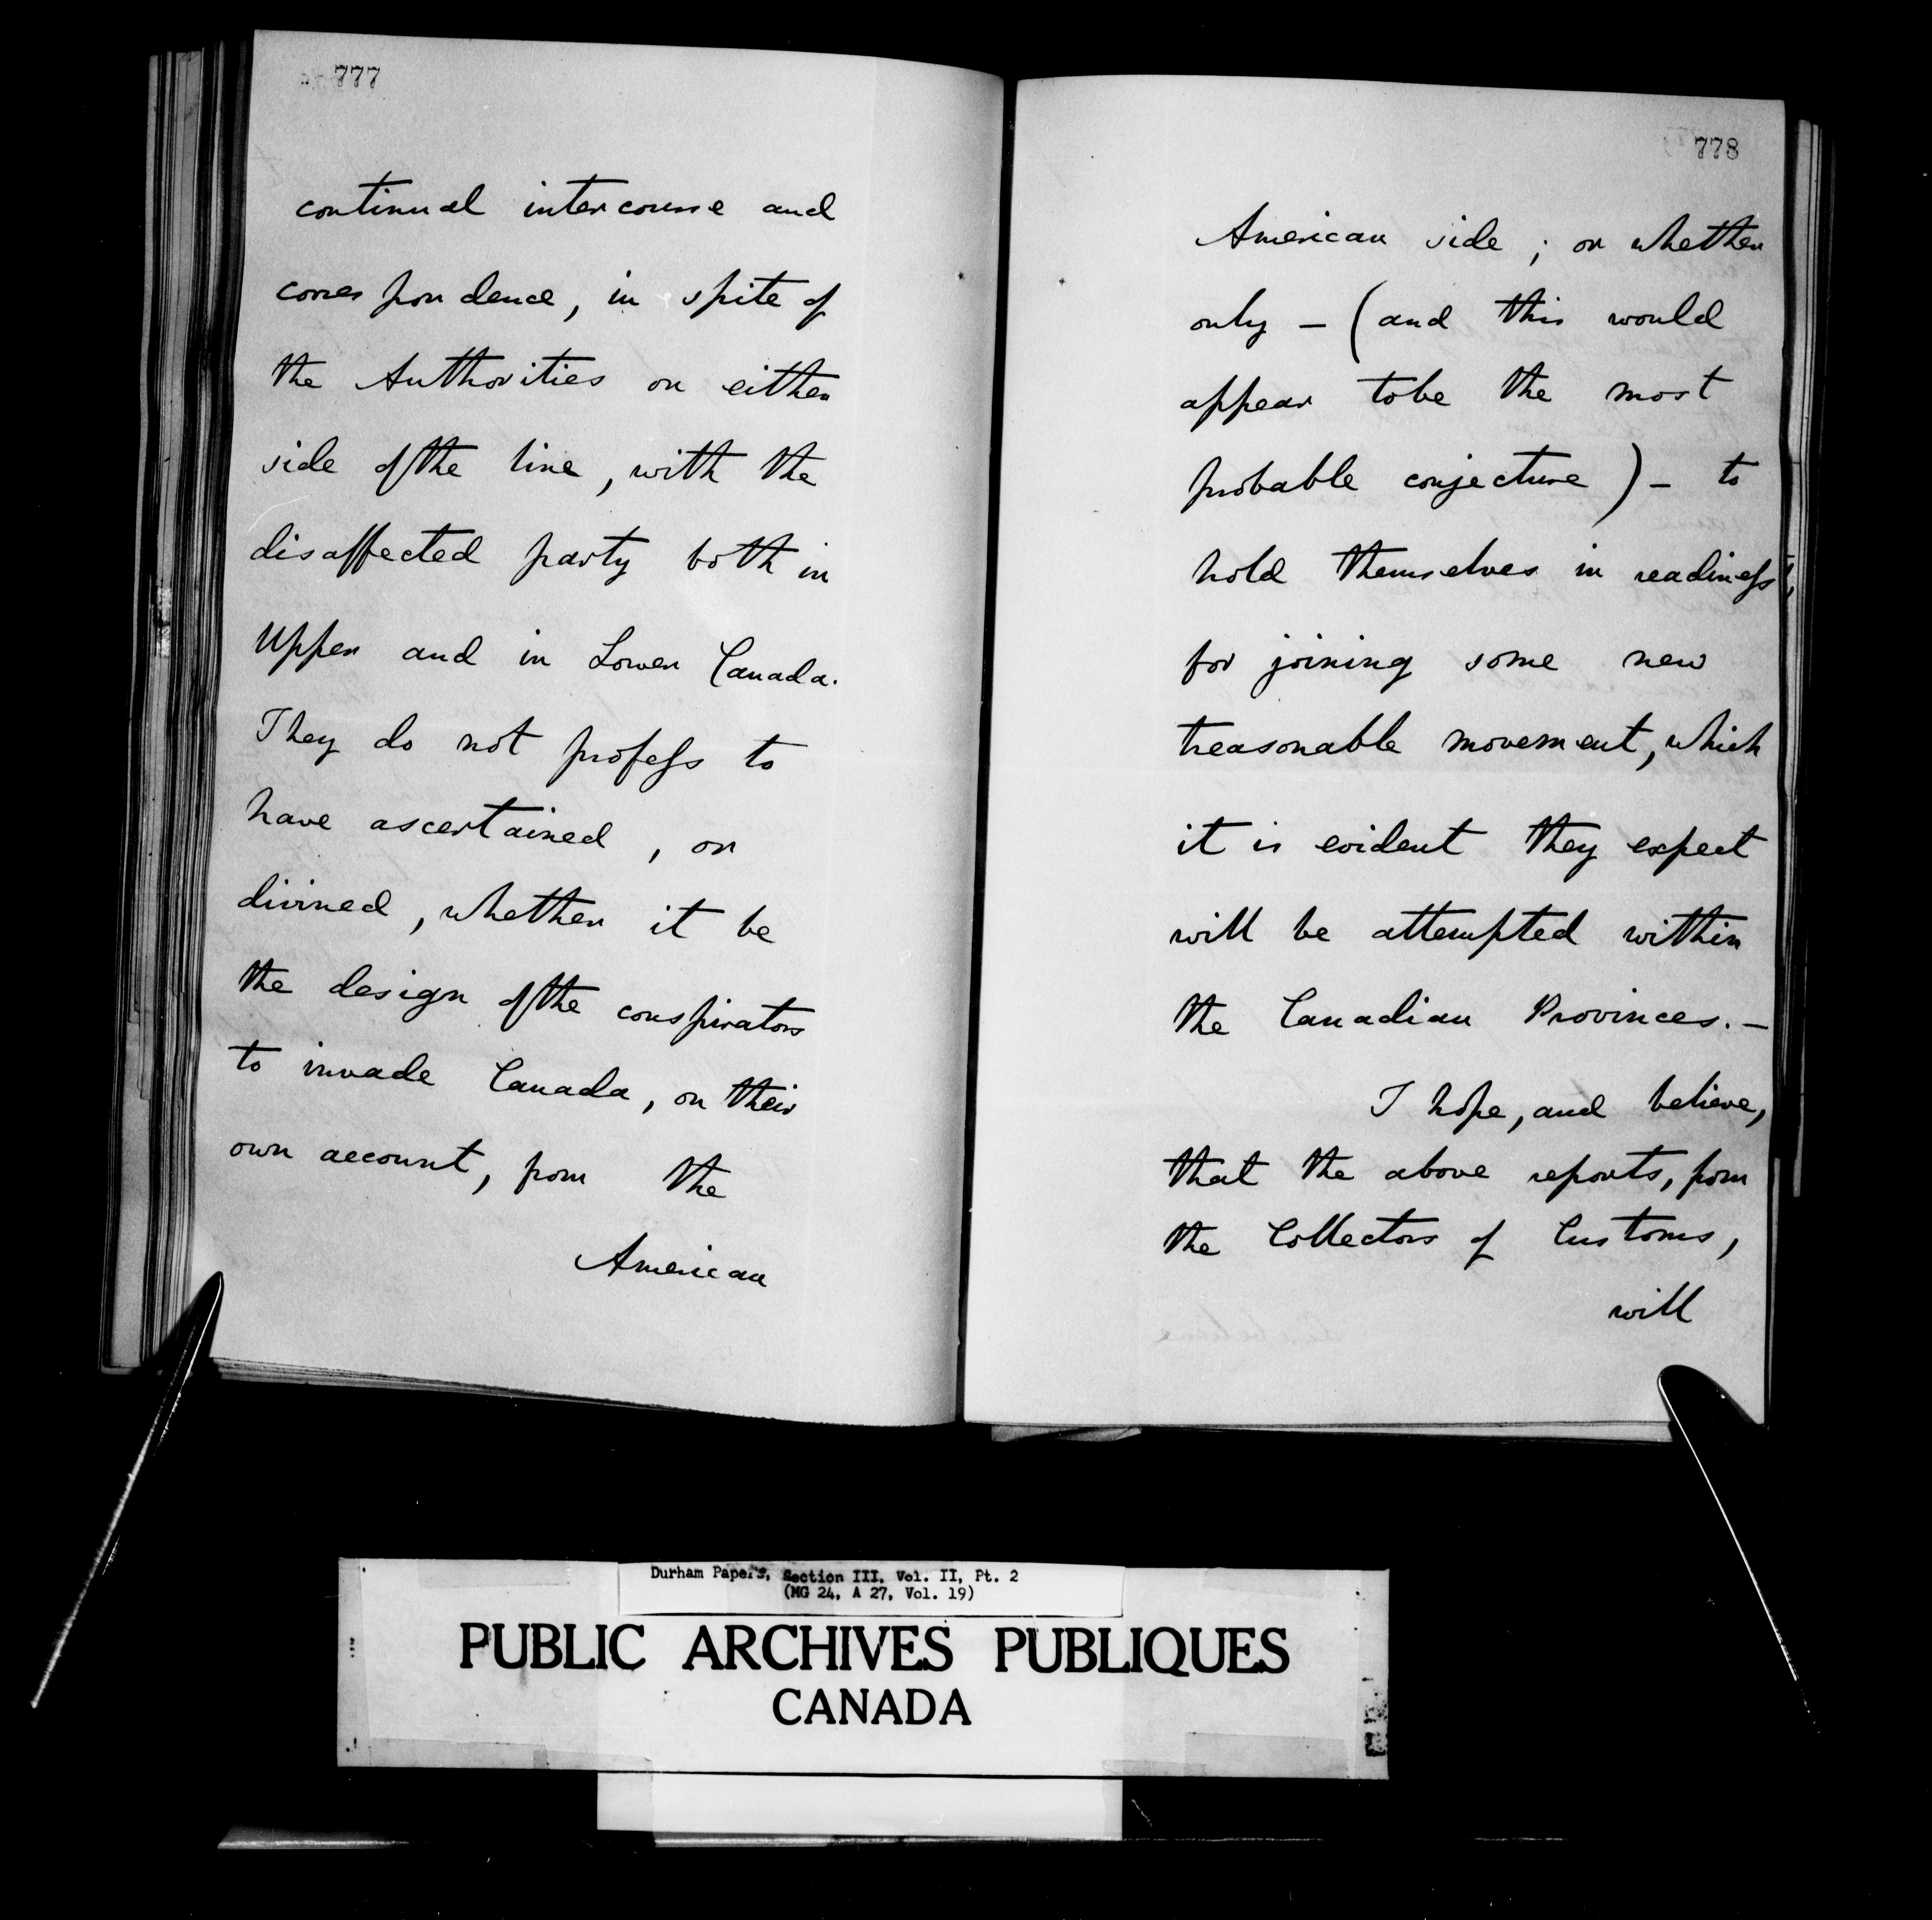 777
continual intercourse and
correspondence, in spite of
the Authorities on either
side of the line, with the
disaffected party both in
Upper and in Lower Canada.
They do not profess to
have ascertained, or
divined, whether it be
the design of the conspirators
to invade Canada, on their
own account, from the
American
778
American side; or whether
only — (and this would
appear to be the most
probable conjecture) — to
hold themselves in readiness,
for joining some new
treasonable movement, which
it is evident they expect
will be attempted within
the Canadian Provinces. —
I hope, and believe,
that the above reports, from
the Collectors of Customs,
will
Durham Papers, Section III, Vol. II, Pt. 2
(MG 24, A 27, Vol. 19)
PUBLIC ARCHIVES PUBLIQUES
CANADA